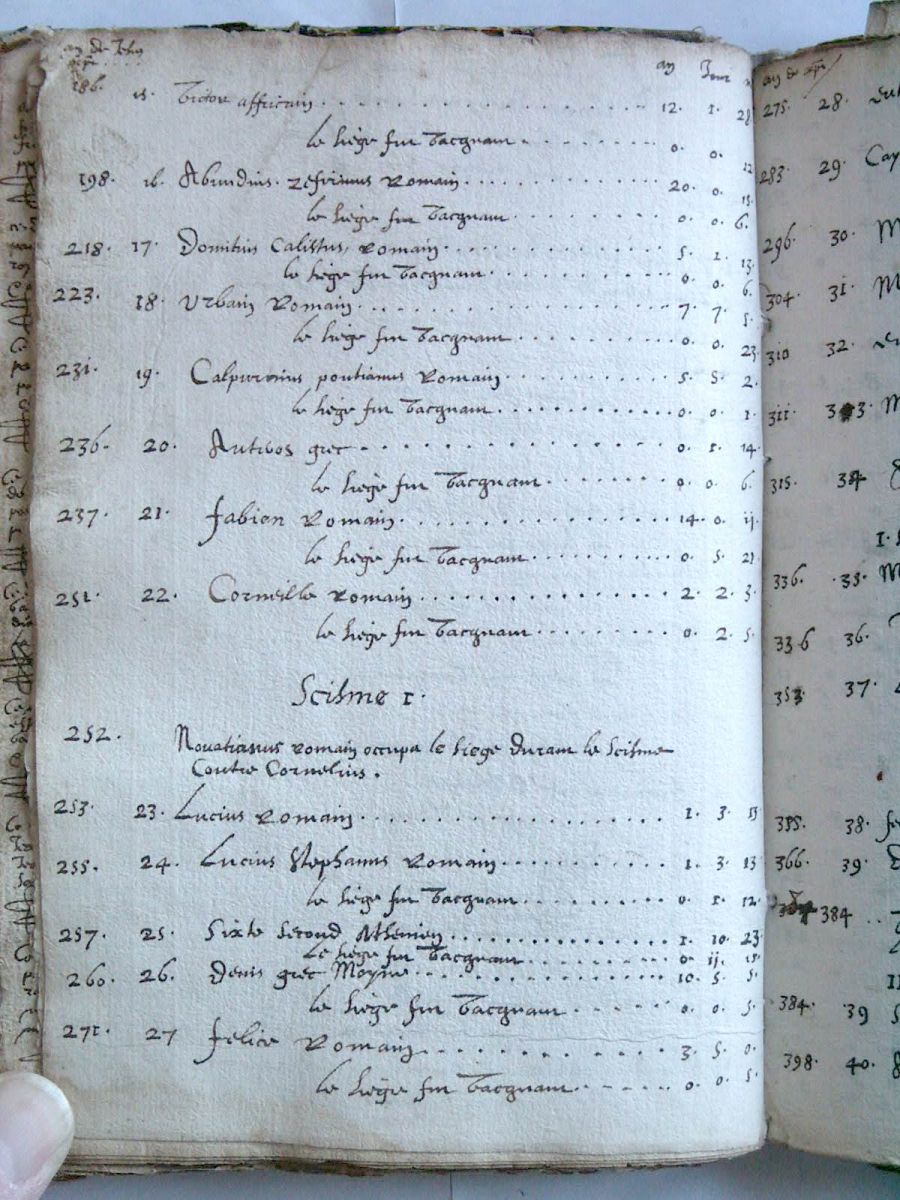 an de
an Jour
186. 15. Victor affricain 12. 1. 28
le siège fut vacquant 0. 0. 12
198. 16. Abundius zefirinus Romain 20. 0. 15.
le siège fut vacquant 0. 0. 6.
218. 17. Domitius Calistus Romain 5. 1. 13
le siège fut vacquant 0. 0. 6.
223. 18. Urbain Romain 7. 7. 5.
le siège fut vacquant 0. 0. 23
231. 19. Calpurnius pontianus Romain 5. 5. 2.
le siège fut vacquant 0. 0. 1.
236. 20. grec 0. 1. 14.
le siège fut vacquant 0. 0. 6.
237. 21. fabien Romain 14. 0. 11.
le siège fut vacquant 0. 5. 21
251. 22. Corneille Romain 2. 2. 3.
le siège fut vacquant 0. 2. 5.
Scisme 1.
252.
Novatianus romain occupa le siege durant le scisme
Contre Cornelius.
253. 23. Lucius Romain 1. 3. 13
255. 24. Lucius Stephanus Romain 1. 3. 13
le siège fut vacquant 0. 1. 12.
257. 25. Sixte second Athenien 1. 10. 23
le siège fut vacquant 0. 11. 15.
260. 26. Denis grec Moyne 10. 5. 5.
le siège fut vacquant 0. 0. 5.
271. 27 felice Romain 3. 5. 0.
le siège fut vacquant 0. 0. 5.
an de
275. 28.
283 29. Cay
296. 30. M
304. 31. M
310 32.
311. 33. M
315. 34
336. 35. M
336 36.
353 37.
355. 38. fe
366. 39.
384
384. 39
398. 40.